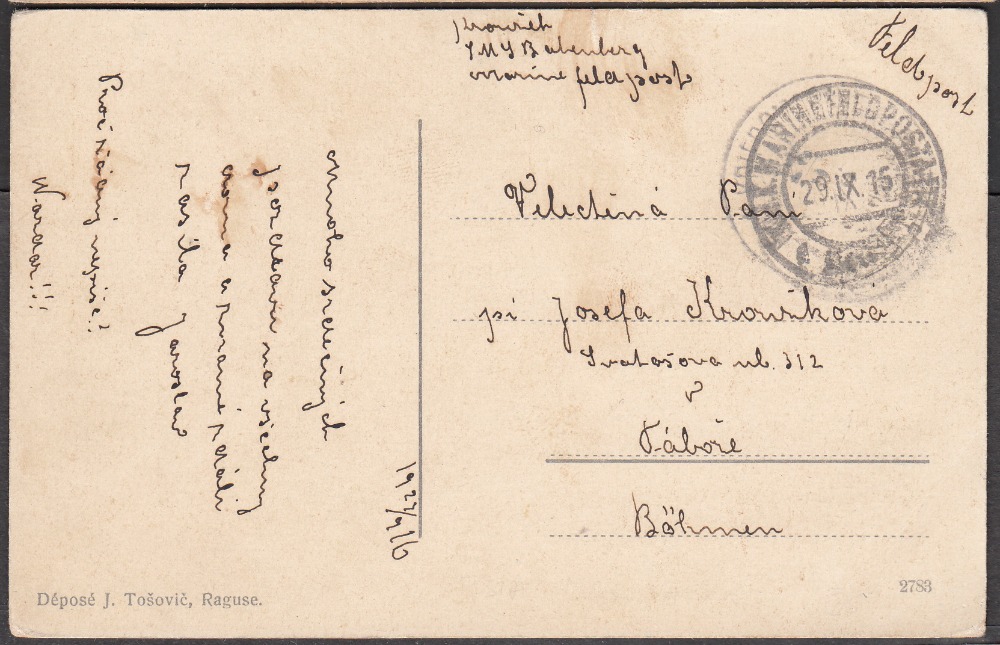 Feldpost
SMS Babenberg
marine feldpost
K.u.K. MARINEFELDPOSTAMT
29.IX.16
Velectěná Paní
pí Josefa Krouxíková
Svatošova ul. 312
v
Táboře
Böhmen
1927/9 16
Mnoho srdečných
pozdravů na všechny
doma a známé zdáli
zasílá Jaroslav
Proč žádný nepíše?
Nazdar!!!
Déposé J. Tošovič, Raguse.
2783